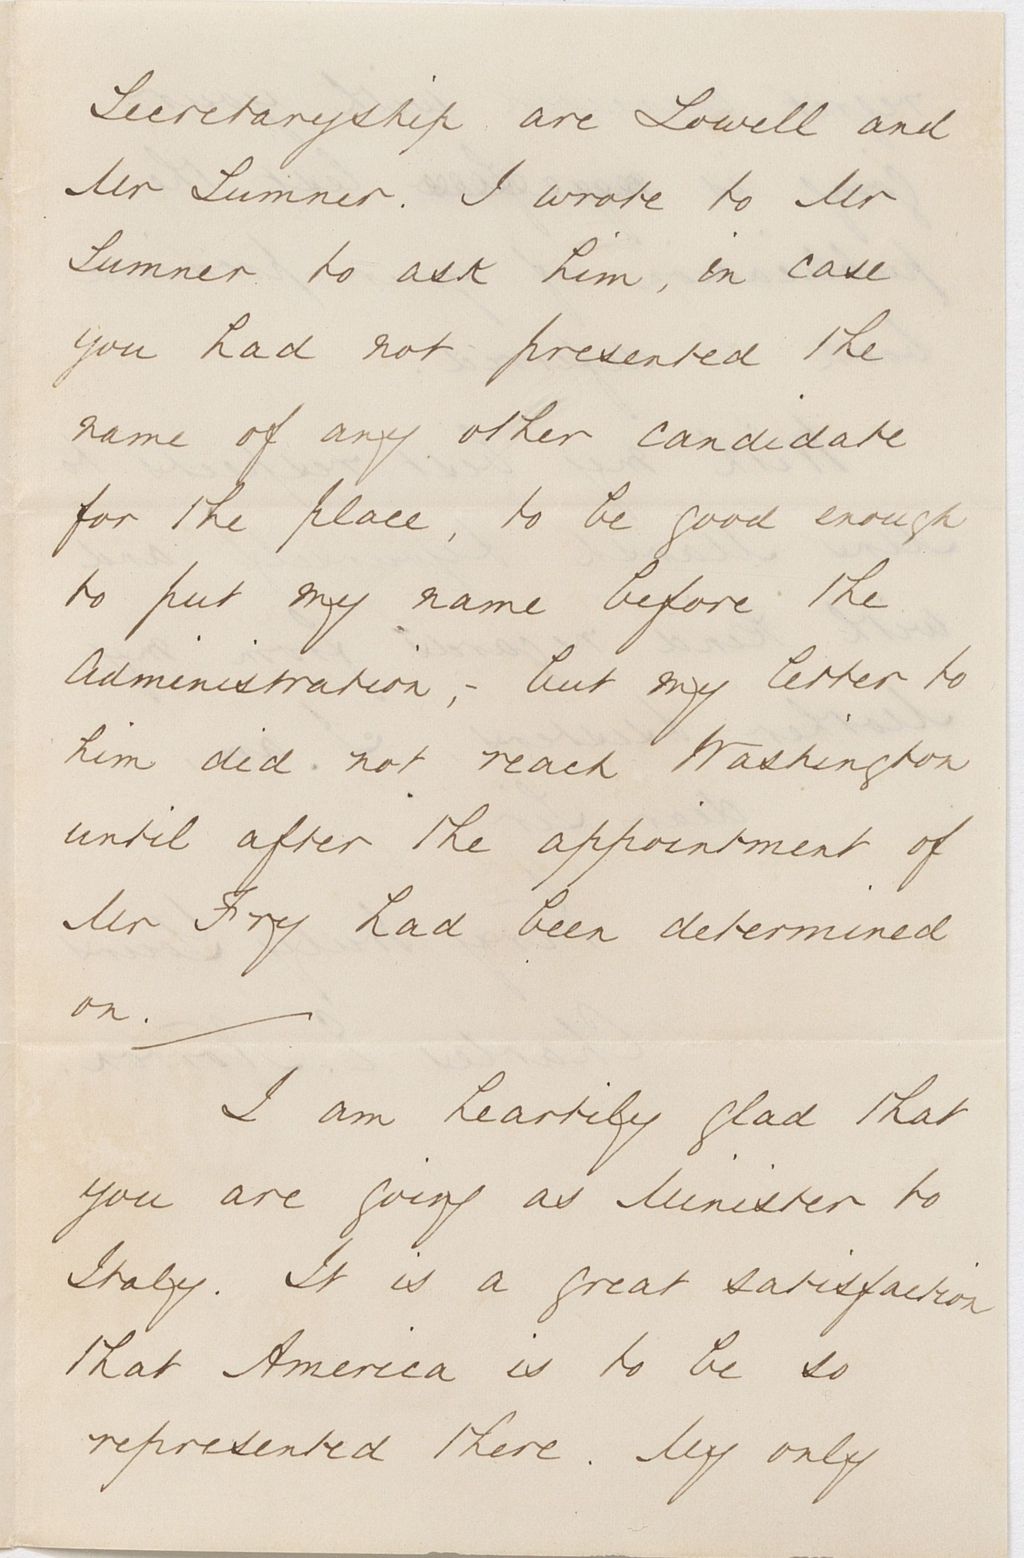 Secretaryship are Lowell and
Mr Sumner. I wrote to Mr
Sumner to ask him, in case
you had not presented the
name of any other candidate
for the place, to be good enough
to put my name before the
Administration,- but my letter to
him did not reach Washington
until after the appointment of
Mr Fry had been determined
on.
I am heartily glad that
you are going as Minister to
Italy. It is a great satisfaction
that America is to be so
represented there. My only